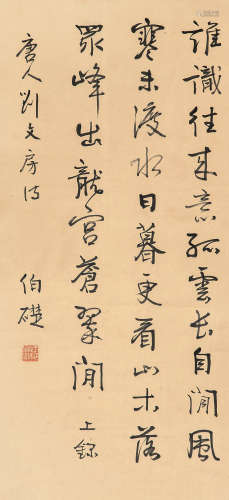 誰識往來意孤雲長自閒風
寒未渡水日暮更看山木落
眾峰出龍宮蒼翠間 上錄
唐人劉文房詩 伯礎